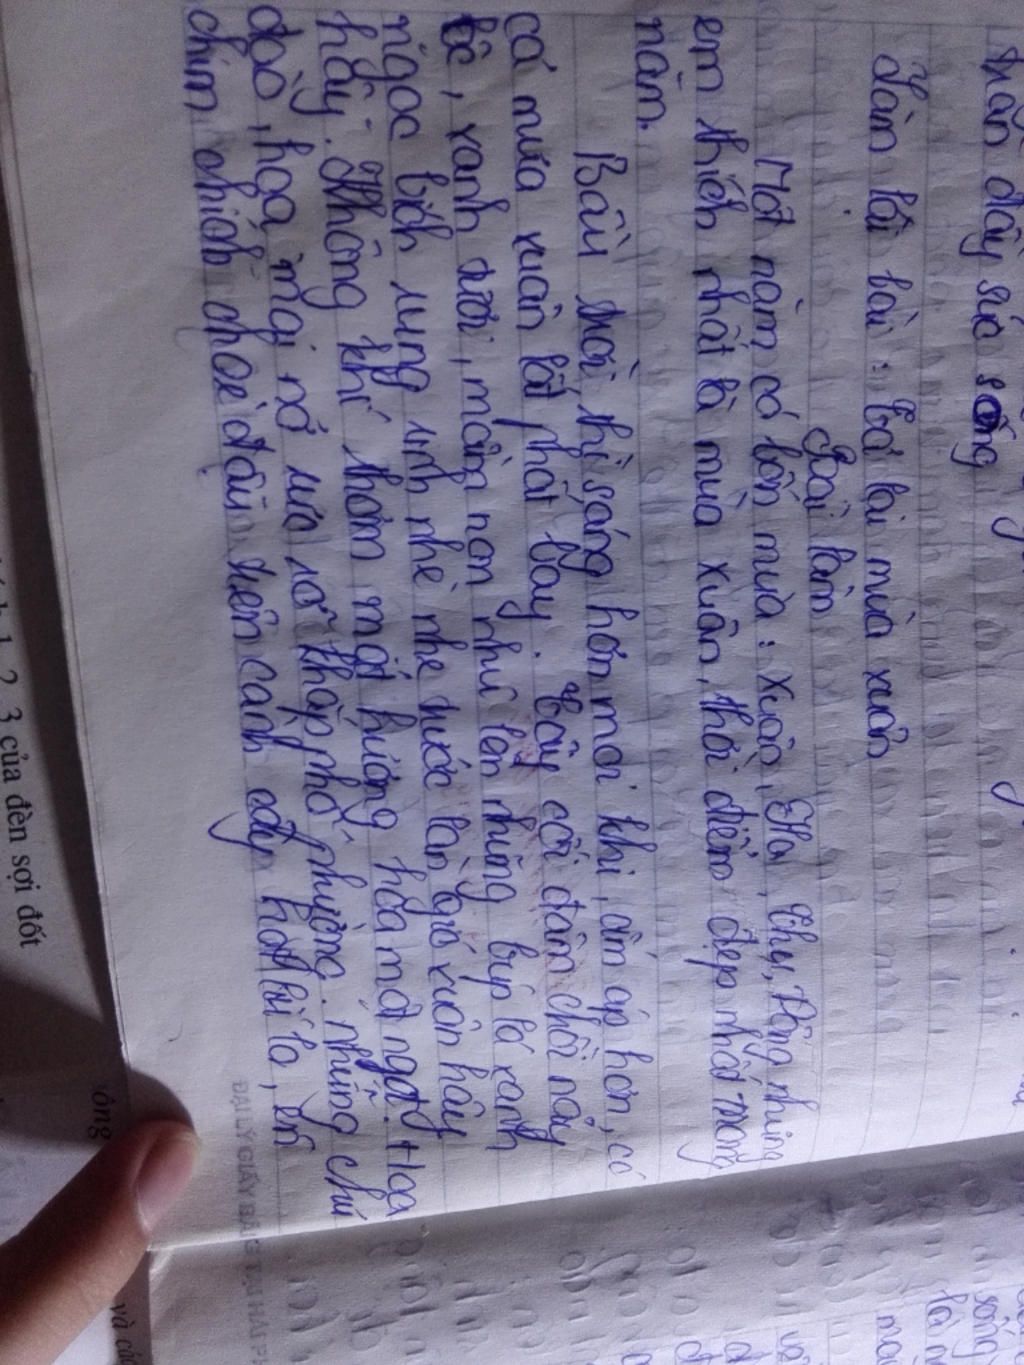 tràn đầy sức sống
Làm lại bài: Tả lại mùa xuân
Bài làm
Một năm có bốn mùa: Xuân, Hạ, Thu, Đông nhưng
em thích nhất là mùa xuân, thời điểm đẹp nhất trong
năm.
Bầu trời thì sáng hơn mọi khi, ấm áp hơn, có
cả mưa xuân lất phất bay. Cây cối đâm chồi nảy
lộc, xanh tươi, mầm non nhú lên những búp lá xanh
ngọc bích rung rinh nhè nhẹ trước làn gió xuân hây
hẩy. Không khí thơm một hương hoa mát ngọt. Hoa
đào, hoa mai nở rực rỡ khắp phố phường. những chú
chim chích choè đậu trên cành cây hót líu lo, đến
1, 2, 3 của đèn sợi đốt
và các
ĐẠI LÝ GIẤY BÃI